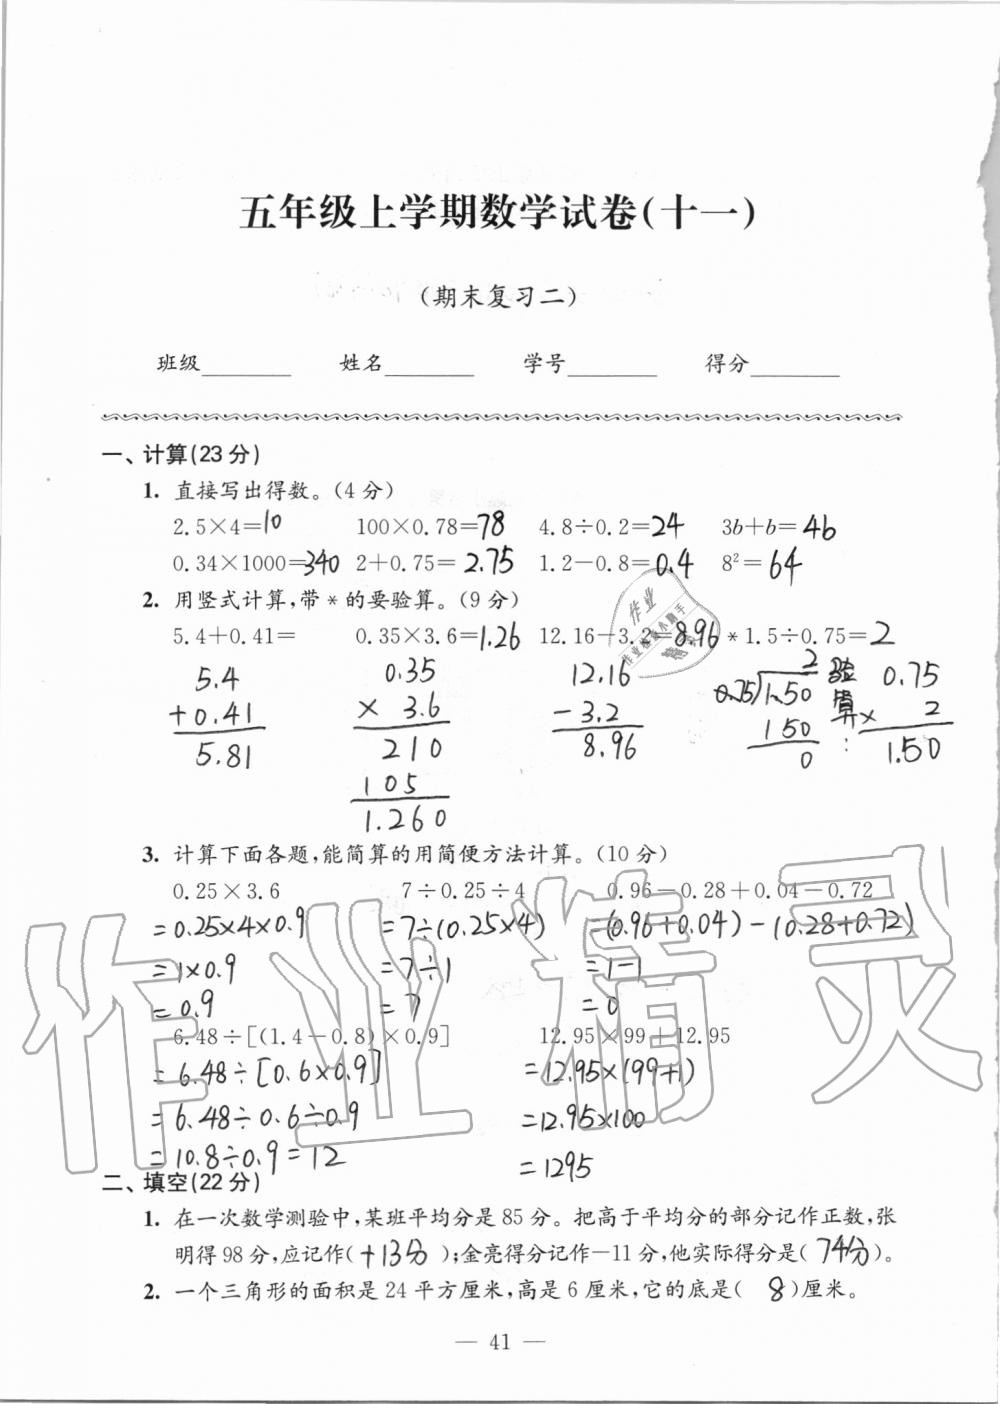 五年级上学期数学试卷(十一)
(期末复习二)
班级 姓名 学号 得分
一、计算(23分)
1. 直接写出得数。(4分)
2.5×4=10 100×0.78=78 4.8÷0.2=24 3b+b=4b
0.34×1000=340 2+0.75=2.75 1.2-0.8=0.4 8²=64
2. 用竖式计算,带*的要验算。(9分)
5.4+0.41= 0.35×3.6=1.26 12.16-3.2=8.96 *1.5÷0.75=2
5.4 0.35 12.16 2 验 0.75
+0.41 × 3.6 -3.2 0.75)1.50 算 × 2
5.81 210 8.96 150 : 1.50
105 0
1.260
3. 计算下面各题,能简算的用简便方法计算。(10分)
0.25×3.6 7÷0.25÷4 0.96-0.28+0.04-0.72
=0.25×4×0.9 =7÷(0.25×4) =(0.96+0.04)-(0.28+0.72)
=1×0.9 =7÷1 =1-1
=0.9 =7 =0
6.48÷[(1.4-0.8)×0.9] 12.95×99+12.95
=6.48÷[0.6×0.9] =12.95×(99+1)
=6.48÷0.6÷0.9 =12.95×100
=10.8÷0.9=12 =1295
二、填空(22分)
1. 在一次数学测验中,某班平均分是85分。把高于平均分的部分记作正数,张
明得98分,应记作(+13分);金亮得分记作-11分,他实际得分是(74分)。
2. 一个三角形的面积是24平方厘米,高是6厘米,它的底是( 8 )厘米。
— 41 —
作业精灵
作业
作业检查小助手
精灵